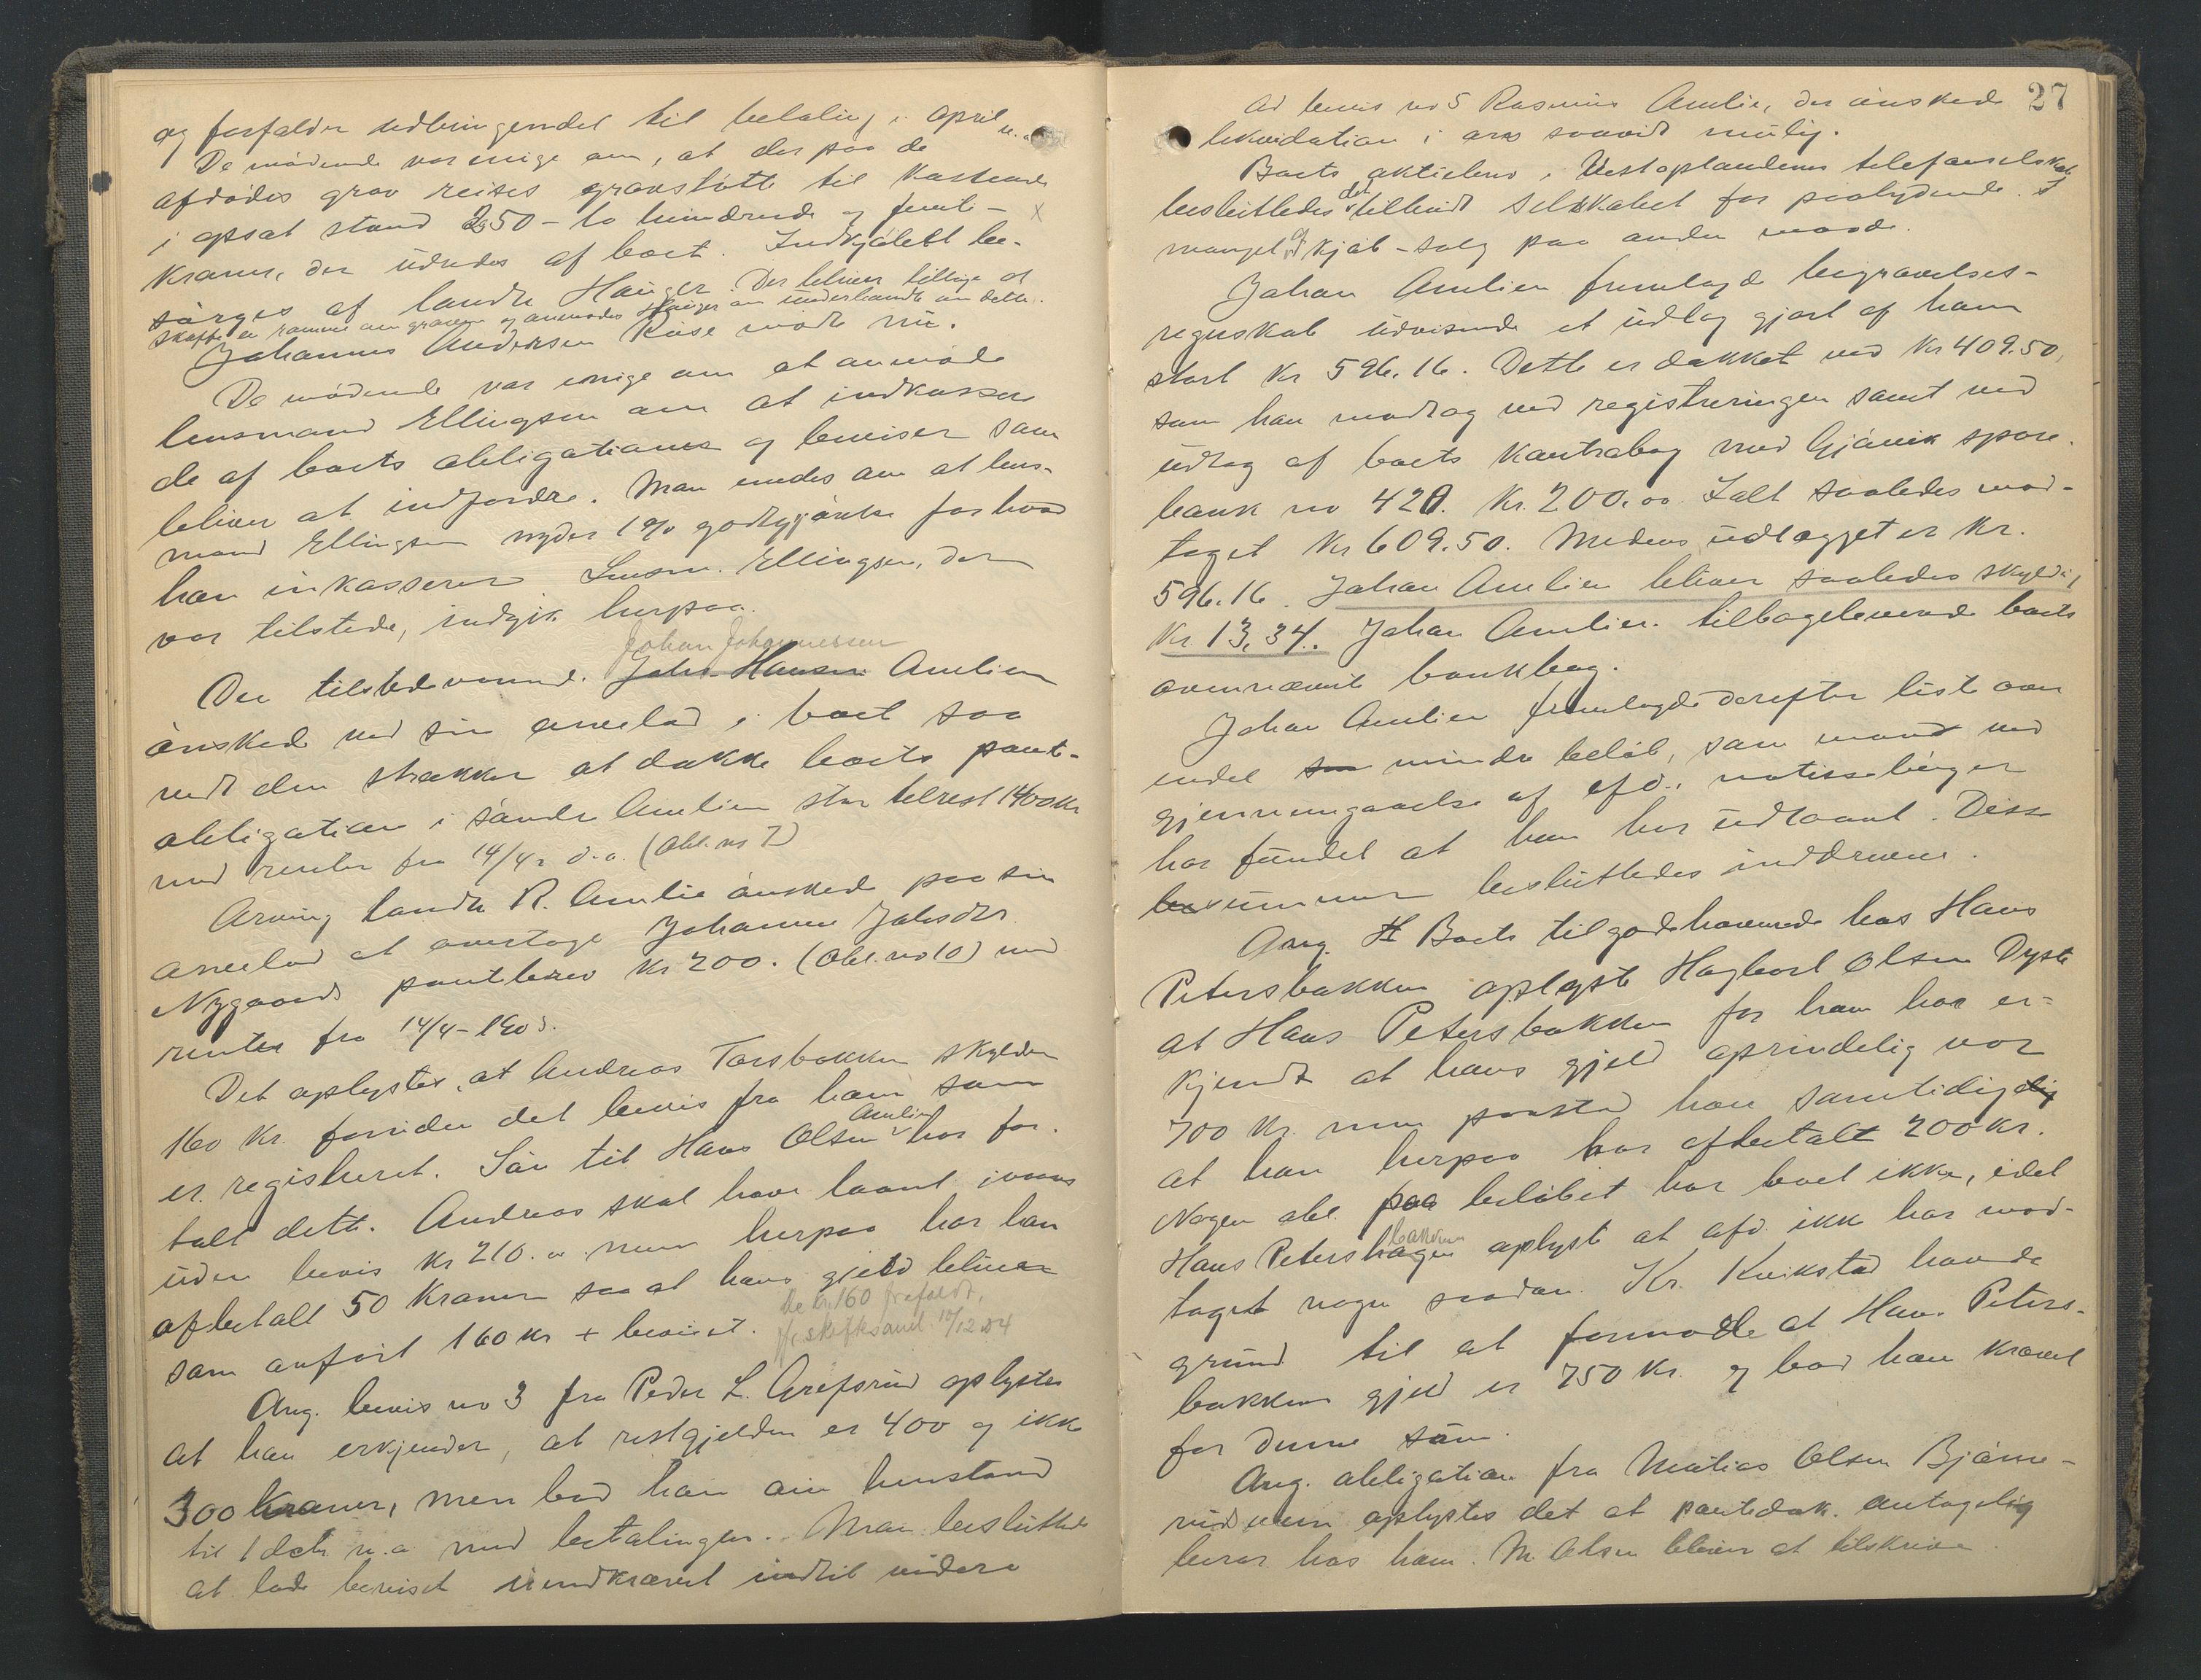 og forfalder udbringendet til betaling i april n.a.
De mødende var enige om, at der paa de
afdødes grav reises gravstøtte til kostende
i opsat stand 250 – to hundrede og femti – x
Kroner, der udredes af boet. Indkjøbet be-
sørges af landh. Hauger. Der bliver tillige at
skaffe en ramme om graven og anmodes Hauger om underhandle om dette.
Johannes Andersen Rise mødte nu.
De mødende var enige om at anmode
lensmand Ellingsen om at indkassere
de af boets obligationer og beviser som
bliver at indfordre. Man enedes om at lens-
mand Ellingsen nyder 1 % godtgjørelse for hvad
han inkasserer. Lensm. Ellingsen, der
var tilstede, indgik herpaa.
Johan Johannessen
Den tilstedeværende Johs. Hansen Amlien
ønskede ved sin arvelod i boet saa
vidt den strækker at dække boets pante-
obligation i søndre Amlien stor tilrest 1400 kr
med renter fra 14/4 d.a. (Obl. no 7)
Arving landh. R. Amlie ønskede paa sin
arvelod at overtage Johannes Johsdtr
Nygaards pantebrev Kr 200. (Obl. no 10) med
renter fra 14/4 – 1903.
Det oplystes, at Andreas Torsbakken skylder
160 Kr. foruden det bevis fra ham som
er registreret. Søn til Hans Olsen Amlien har for-
talt dette. Andreas skal have laant
uden bevis Kr 210.00 men herpaa har han
afbetalt 50 Kroner saa at hans gjeld bliver
som anført 160 Kr + beviset. De kr. 160 frafaldt,
jfr. skiftesaml. 10/12 04
Ang. bevis no 3 fra Peder L. Grefsrud oplystes
at han erkjender, at restgjelden er 400 og ikke
300 Kroner, men bad han om henstand
til 1 oktr n.a. med betalingen. Man besluttede
at lade beviset uindkrævet indtil videre
27
Ad bevis no 5 Rasmus Amlie, der ønskede
likvidation i arv saavidt mulig.
Boets aktiebrev i Vestoplandenes telefonselskab
besluttedes det tilbudt selskabet for paalydende. I
mangel af kjøb – salg paa anden maade.
Johan Amlien fremlagde begravelses-
regnskab udvisende et udlæg gjort af ham
stort Kr 596.16. Dette er dækket ved Kr 409.50,
som han modtog ved registreringen samt ved
udtag af boets Kontrabog med Gjøvik spare-
bank no 420. Kr. 200.00. Ialt saaledes mod-
taget Kr 609.50. Medens udlægget er Kr.
596.16. Johan Amlien bliver saaledes skyldig
Kr. 13,34. Johan Amlien tilbageleverede boets
ovennævnte bankbog.
Johan Amlien fremlagde derefter liste over
endel som mindre beløb, som mand ved
gjennemgaaelse af afd. notisebøger
har fundet at han har udlaant. Disse
summer besluttedes inddrevne.
Ang. Boets tilgodehavende hos Hans
Petersbakken oplyste Hagbart Olsen Dyste
at Hans Petersbakken for ham har er-
kjendt at hans gjeld oprindelig var
700 Kr. men paastod han samtidig
at han herpaa har afbetalt 200 Kr.
Nogen obl. paa beløbet har boet ikke, idet
Hans Petershagen bakken oplyst at afd. ikke har mod-
taget nogen saadan. Kr. Kvikstad havde
grund til at formode at Hans Peters-
bakkens gjeld er 750 Kr. og bad han krævet
for denne sum.
Ang. obligation fra Matias Olsen Bjørne-
rud oplystes det at pantedok. antagelig
beror hos ham. M. Olsen bliver at tilskrive